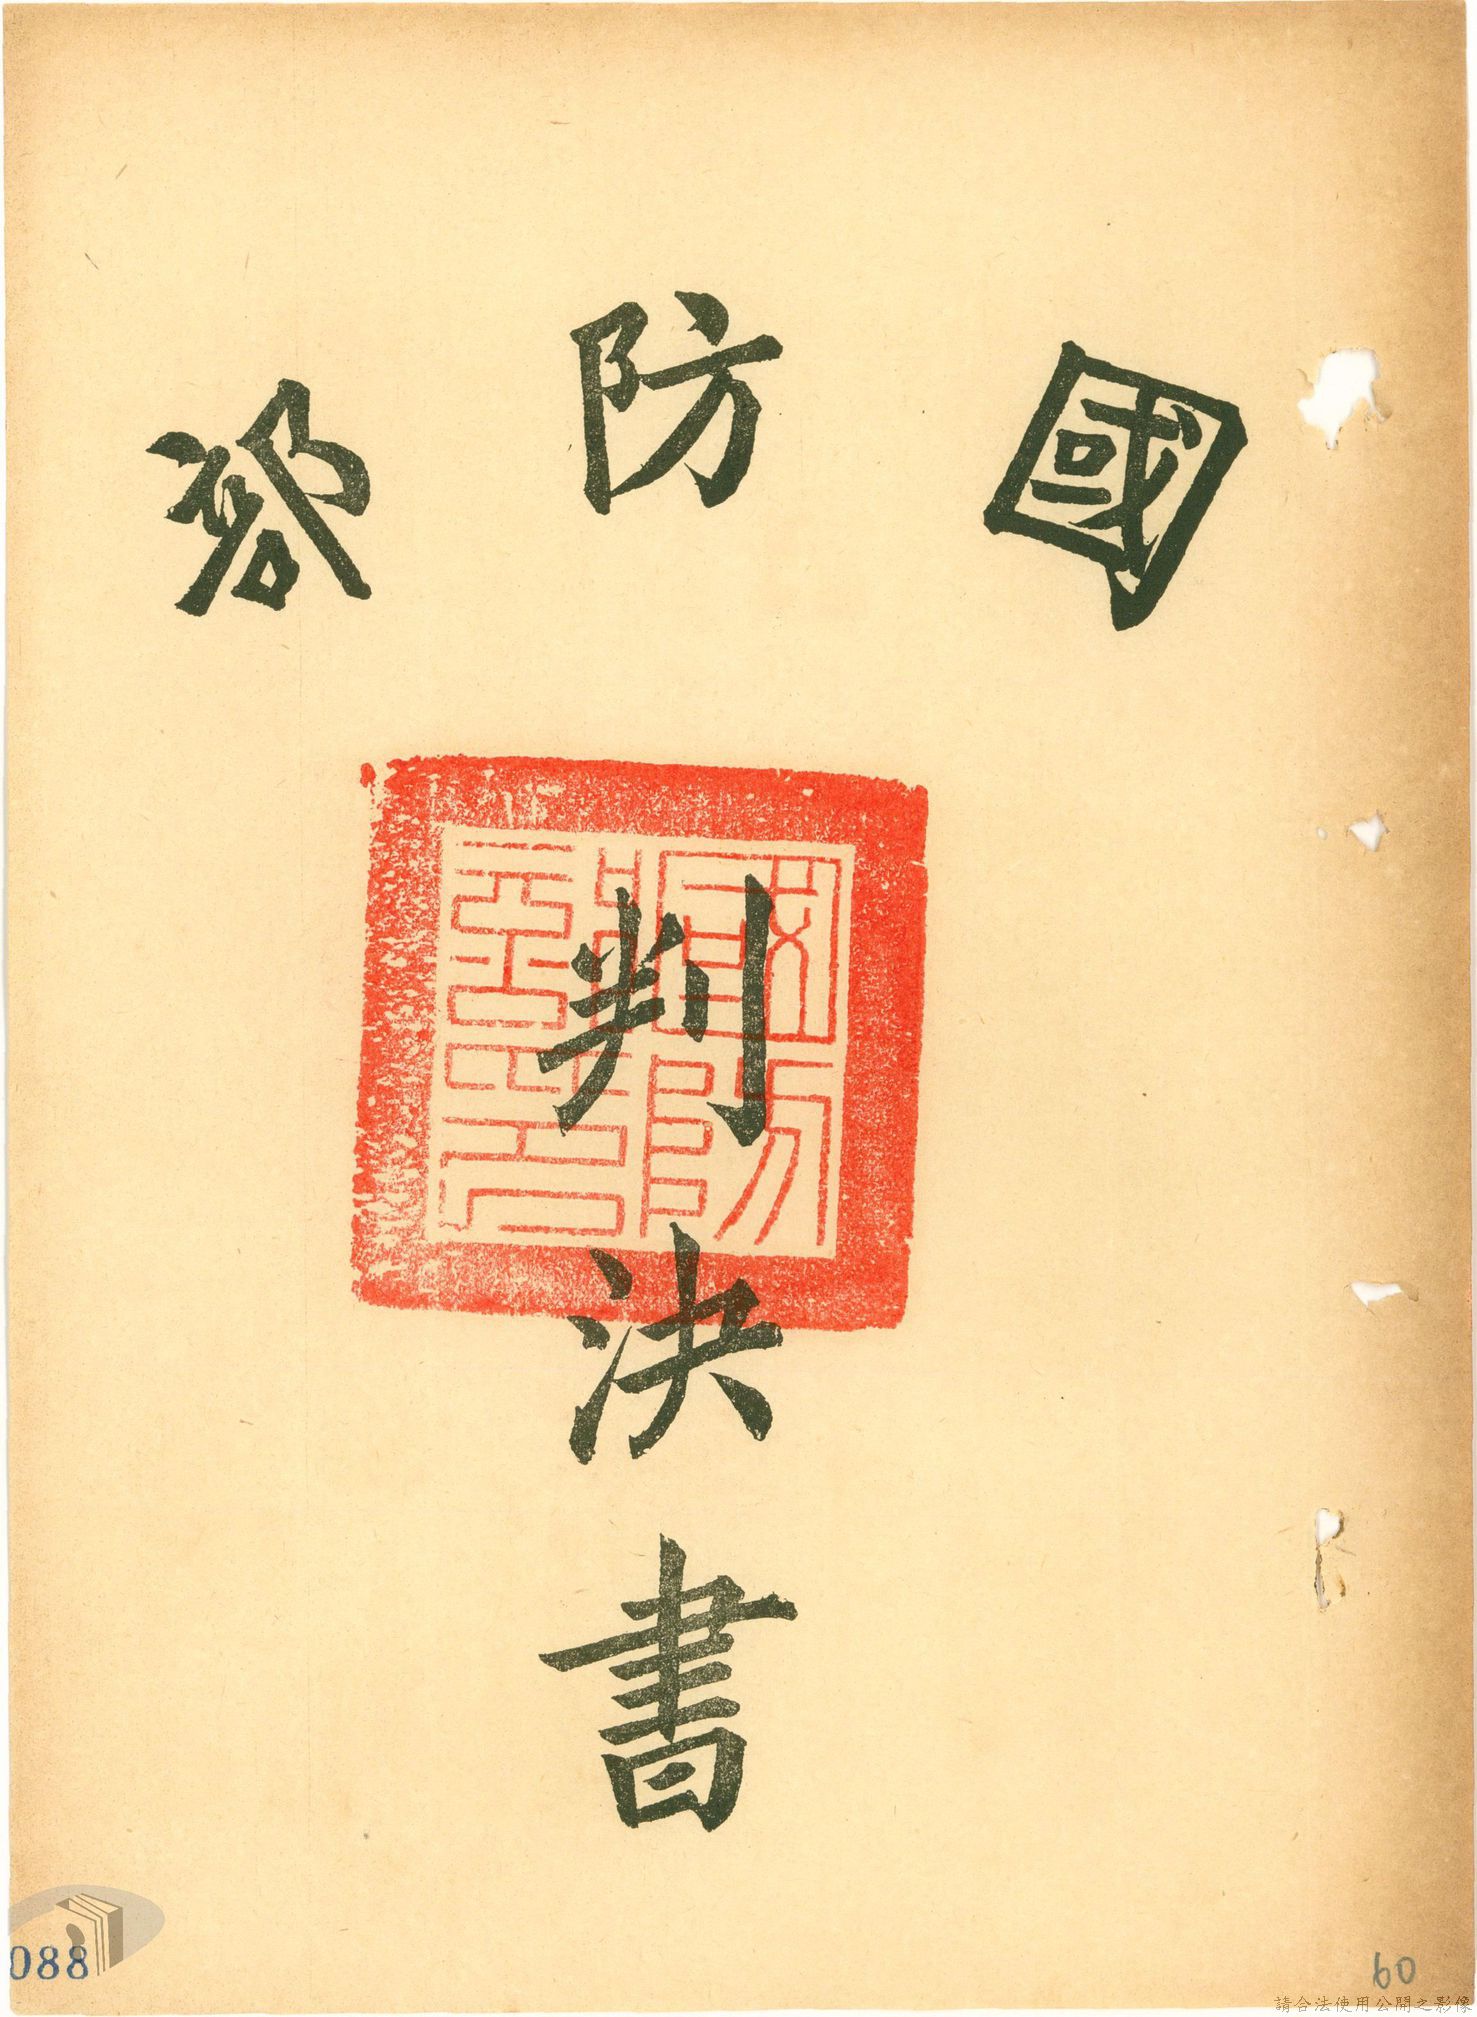 國防部
判決書
國防部印
088
60
請合法使用公開之影像